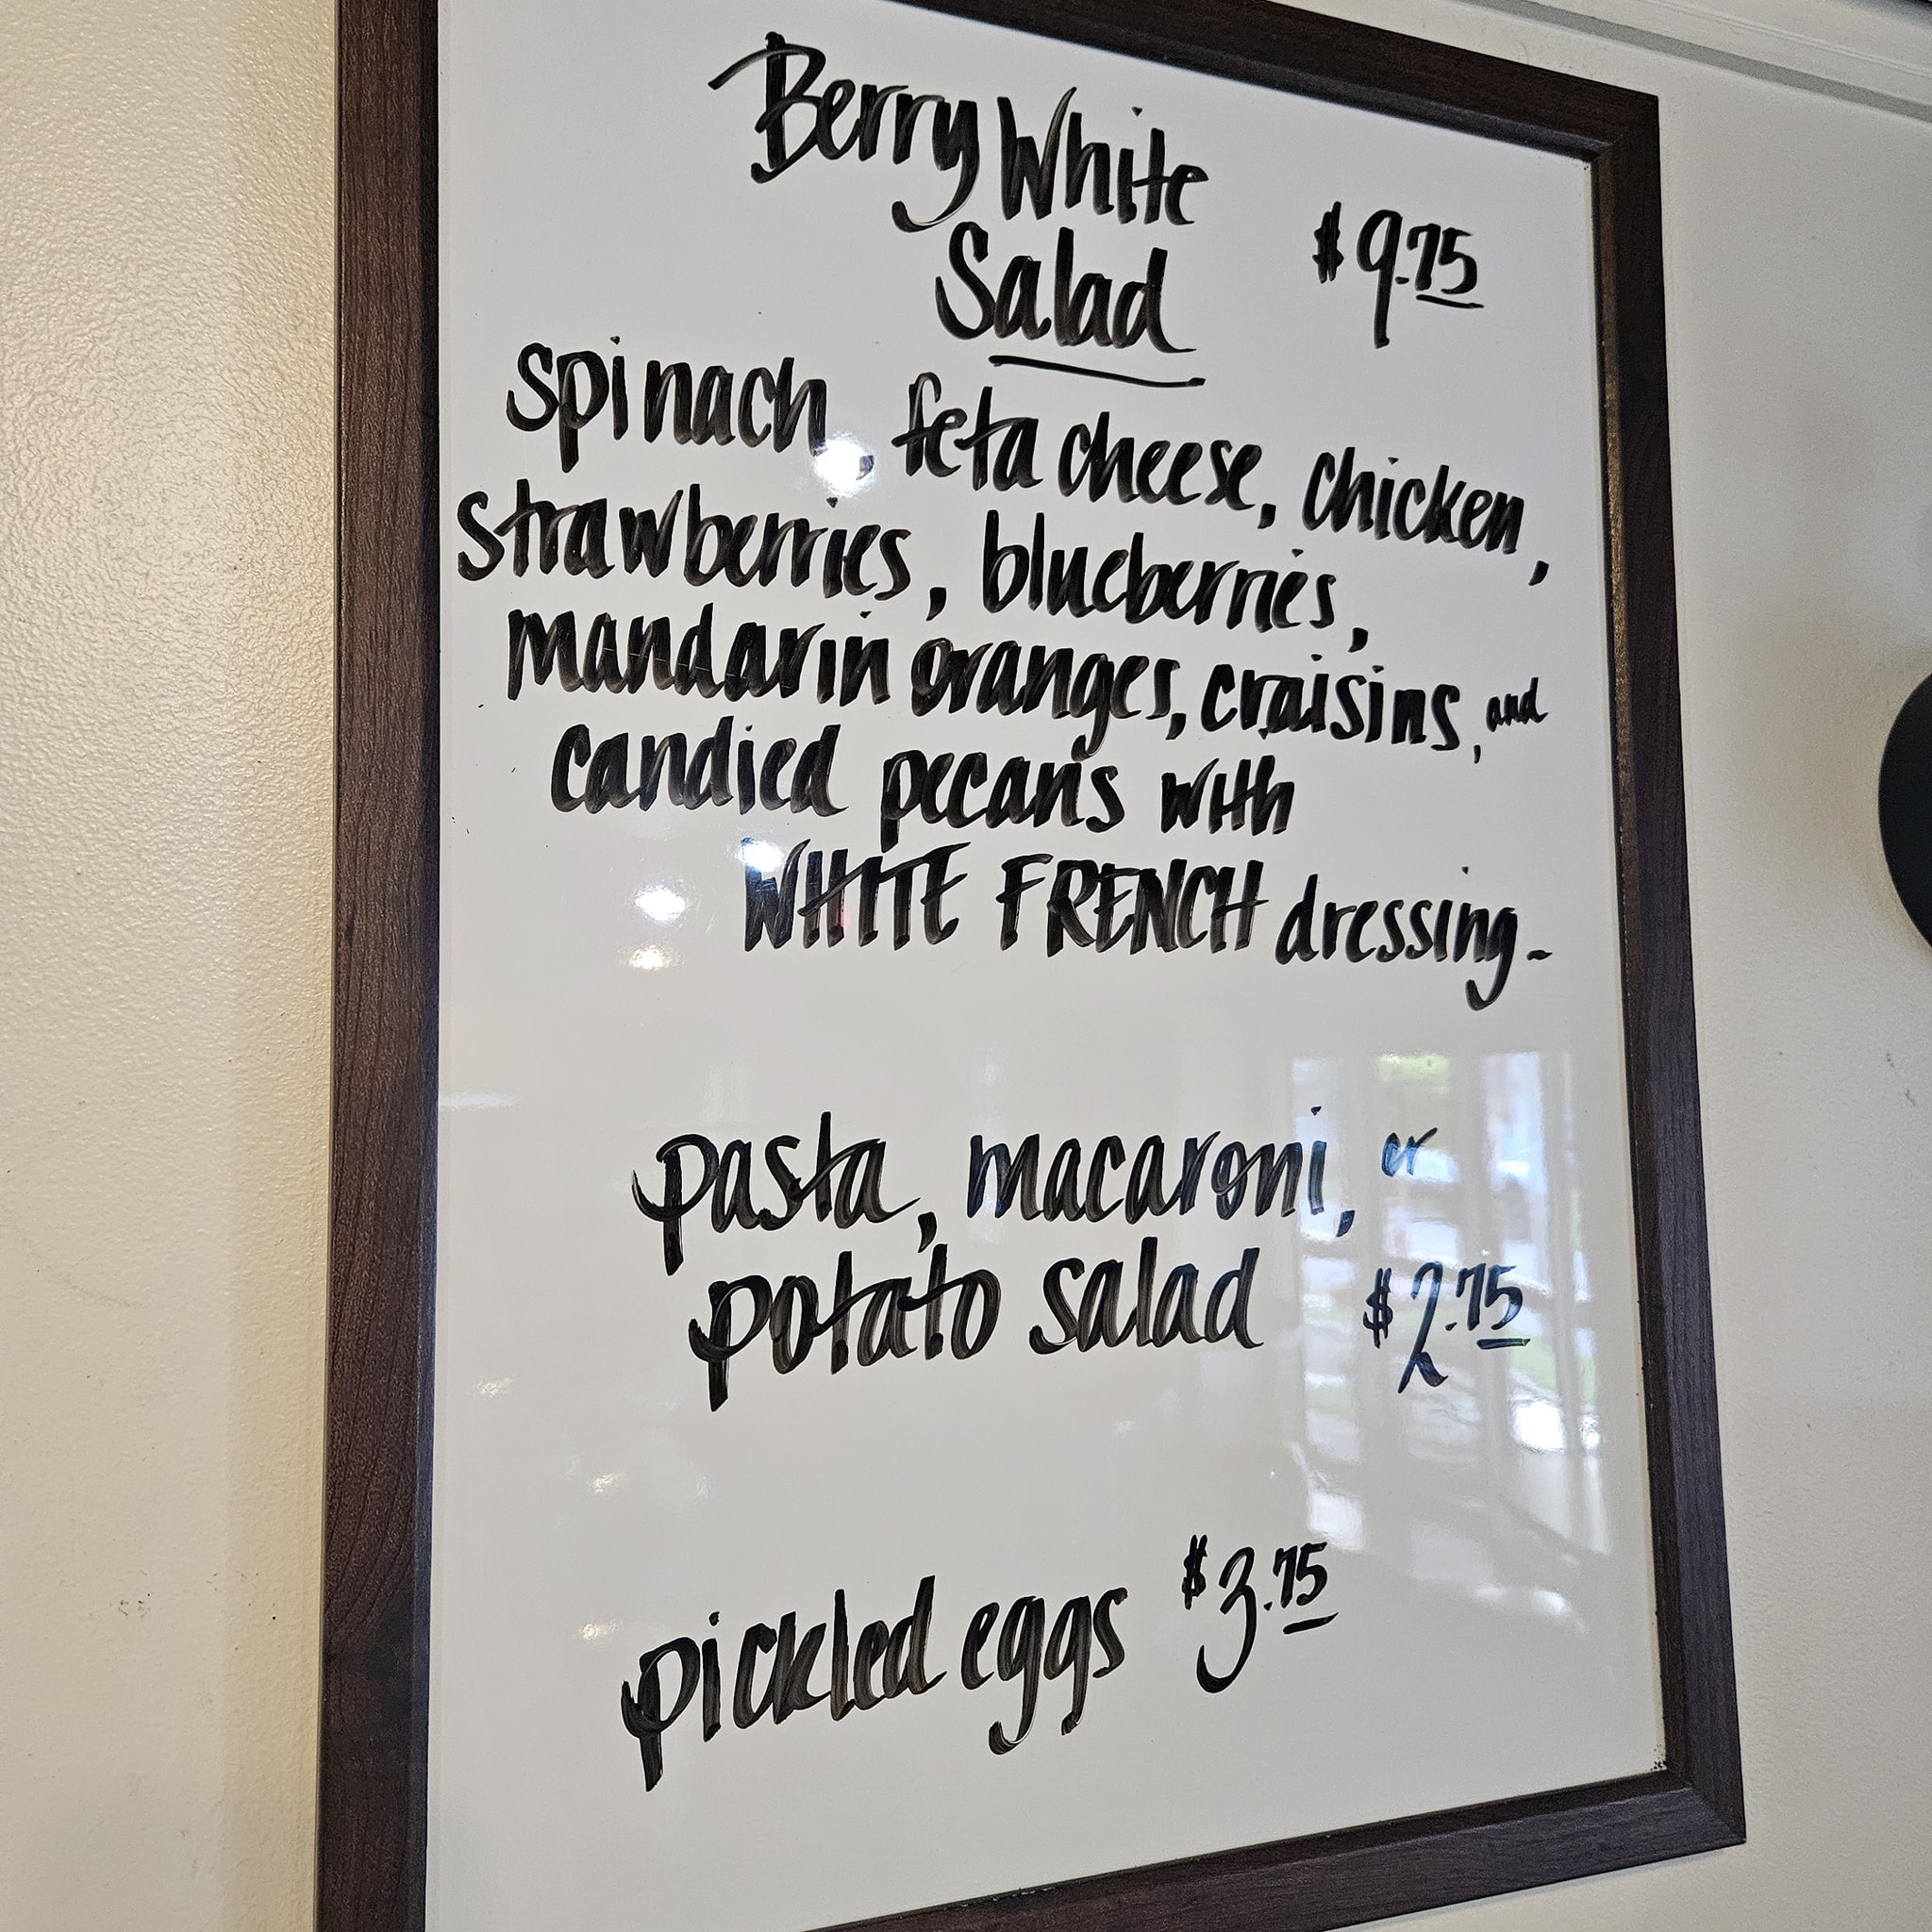 Berry White
Salad $9.75
spinach, feta cheese, chicken,
strawberries, blueberries,
mandarin oranges, craisins, and
candied pecans with
WHITE FRENCH dressing-
pasta, macaroni, or
potato salad $2.75
pickled eggs $3.75